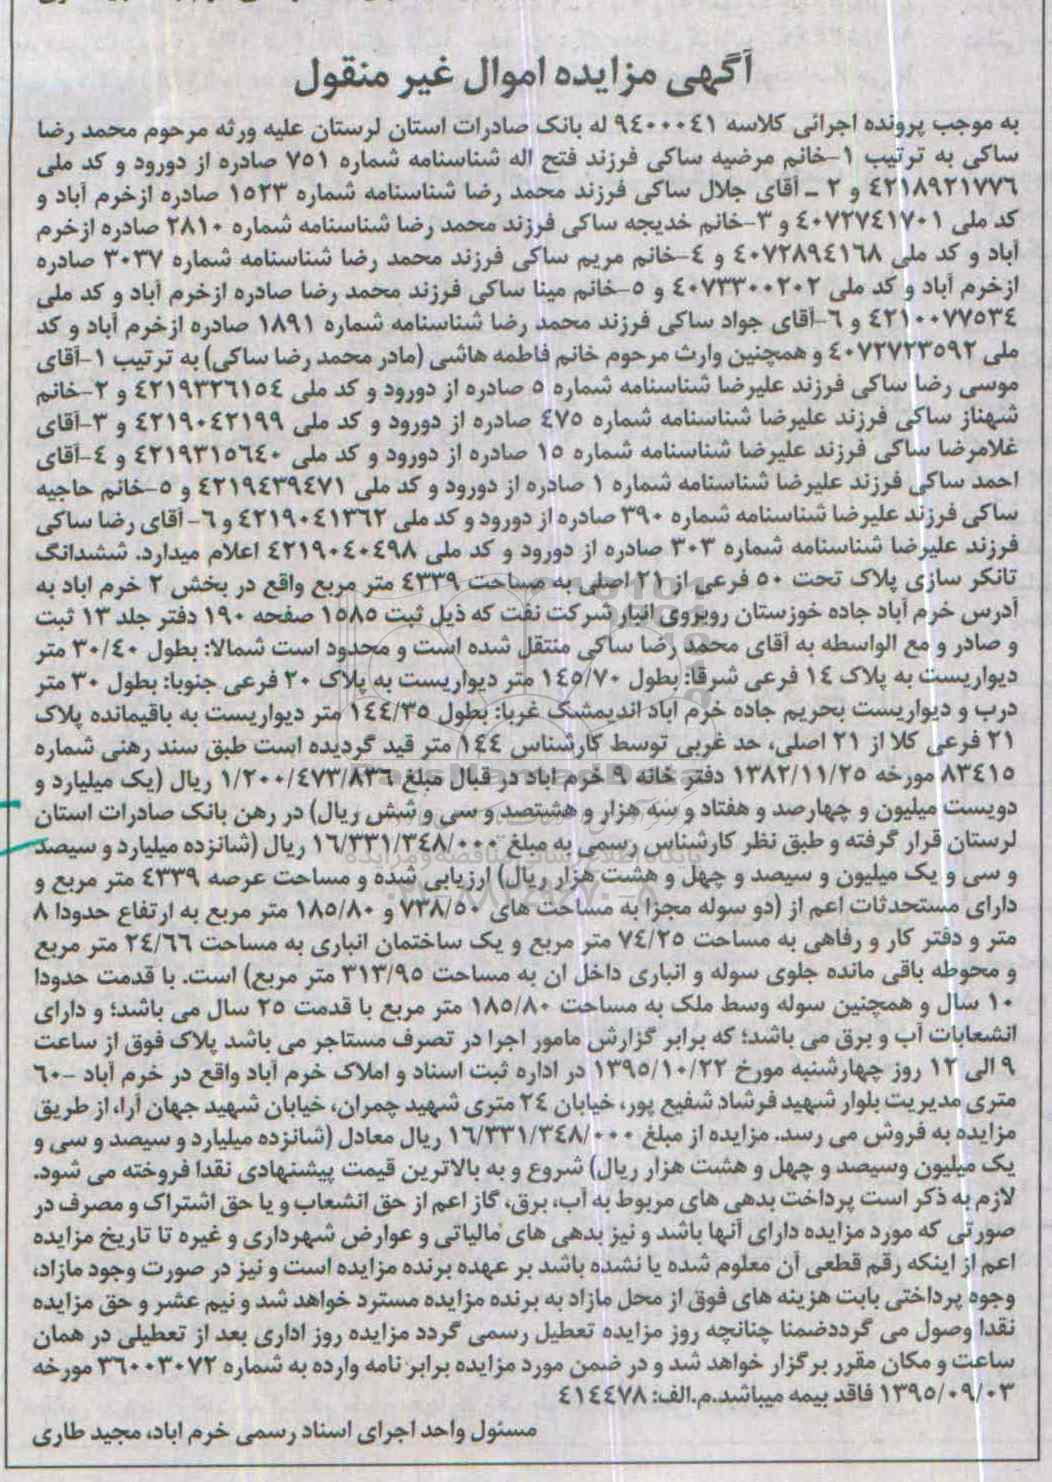 آگهی مزایده اموال غیر منقول
به موجب پرونده اجرائی کلاسه ٩٤٠٠٠٤١ له بانک صادرات استان لرستان علیه ورثه مرحوم محمد رضا
ساکی به ترتیب ١-خانم مرضیه ساکی فرزند فتح اله شناسنامه شماره ٧٥١ صادره از دورود و کد ملی
٤٢١٨٩٢١٧٧٦ و ٢ ـ آقای جلال ساکی فرزند محمد رضا شناسنامه شماره ١٥٢٣ صادره ازخرم آباد و
کد ملی ٤٠٧٢٧٤١٧٠١ و ٣-خانم خدیجه ساکی فرزند محمد رضا شناسنامه شماره ٢٨١٠ صادره ازخرم
آباد و کد ملی ٤٠٧٢٨٩٤١٦٨ و ٤-خانم مریم ساکی فرزند محمد رضا شناسنامه شماره ٣٠٣٧ صادره
ازخرم آباد و کد ملی ٤٠٧٣٣٠٠٢٠٢ و ٥-خانم مینا ساکی فرزند محمد رضا صادره ازخرم آباد و کد ملی
٤٢١٠٠٧٧٥٣٤ و ٦-آقای جواد ساکی فرزند محمد رضا شناسنامه شماره ١٨٩١ صادره ازخرم آباد و کد
ملی ٤٠٧٢٧٢٣٥٩٢ و همچنین وارث مرحوم خانم فاطمه هاشی (مادر محمد رضا ساکی) به ترتیب ١-آقای
موسی رضا ساکی فرزند علیرضا شناسنامه شماره ٥ صادره از دورود و کد ملی ٤٢١٩٣٢٦١٥٤ و ٢-خانم
شهناز ساکی فرزند علیرضا شناسنامه شماره ٤٧٥ صادره از دورود و کد ملی ٤٢١٩٠٤٢١٩٩ و ٣-آقای
غلامرضا ساکی فرزند علیرضا شناسنامه شماره ١٥ صادره از دورود و کد ملی ٤٢١٩٣١٥٦٤٠ و ٤-آقای
احمد ساکی فرزند علیرضا شناسنامه شماره ١ صادره از دورود و کد ملی ٤٢١٩٤٣٩٤٧١ و ٥-خانم حاجیه
ساکی فرزند علیرضا شناسنامه شماره ٣٩٠ صادره از دورود و کد ملی ٤٢١٩٠٤١٣٦٢ و ٦- آقای رضا ساکی
فرزند علیرضا شناسنامه شماره ٣٠٣ صادره از دورود و کد ملی ٤٢١٩٠٤٠٤٩٨ اعلام میدارد. ششدانگ
تانکر سازی پلاک تحت ٥٠ فرعی از ٢١ اصلی به مساحت ٤٣٣٩ متر مربع واقع در بخش ٢ خرم اباد به
آدرس خرم آباد جاده خوزستان روبروی انبار شرکت نفت که ذیل ثبت ١٥٨٥ صفحه ١٩٠ دفتر جلد ١٣ ثبت
و صادر و مع الواسطه به آقای محمد رضا ساکی منتقل شده است و محدود است شمالا: بطول ٣٠/٤٠ متر
دیواریست به پلاک ١٤ فرعی شرقا: بطول ١٤٥/٧٠ متر دیواریست به پلاک ٢٠ فرعی جنوبا: بطول ٣٠ متر
درب و دیواریست بحریم جاده خرم اباد اندیمشک غربا: بطول ١٤٤/٣٥ متر دیواریست به باقیمانده پلاک
٢١ فرعی کلا از ٢١ اصلی، حد غربی توسط کارشناس ١٤٤ متر قید گردیده است طبق سند رهنی شماره
٨٣٤١٥ مورخه ١٣٨٢/١١/٢٥ دفتر خانه ٩ خرم اباد در قبال مبلغ ١/٢٠٠/٤٧٣/٨٣٦ ریال (یک میلیارد و
دویست میلیون و چهارصد و هفتاد و سه هزار و هشتتصد و سی و شش ریال) در رهن بانک صادرات استان
لرستان قرار گرفته و طبق نظر کارشناس رسمی به مبلغ ١٦/٣٣١/٣٤٨/٠٠٠ ریال (شانزده میلیارد و سیصد
و سی و یک میلیون و سیصد و چهل و هشت هزار ریال) ارزیابی شده و مساحت عرصه ٤٣٣٩ متر مربع و
دارای مستحدثات اعم از (دو سوله مجزا به مساحت های ٧٣٨/٥٠ و ١٨٥/٨٠ متر مربع به ارتفاع حدودا ٨
متر و دفتر کار و رفاهی به مساحت ٧٤/٢٥ متر مربع و یک ساختمان انباری به مساحت ٢٤/٦٦ متر مربع
و محوطه باقی مانده جلوی سوله و انباری داخل ان به مساحت ٣١٣/٩٥ متر مربع) است. با قدمت حدودا
١٠ سال و همچنین سوله وسط ملک به مساحت ١٨٥/٨٠ متر مربع با قدمت ٢٥ سال می باشد؛ و دارای
انشعابات آب و برق می باشد؛ که برابر گزارش مامور اجرا در تصرف مستاجر می باشد پلاک فوق از ساعت
٩ الی ١٢ روز چهارشنبه مورخ ١٣٩٥/١٠/٢٢ در اداره ثبت اسناد و املاک خرم آباد واقع در خرم آباد -٦٠
متری مدیریت بلوار شهید فرشاد شفیع پور، خیابان ٢٤ متری شهید چمران، خیابان شهید جهان آرا، از طریق
مزایده به فروش می رسد. مزایده از مبلغ ١٦/٣٣١/٣٤٨/٠٠٠ ریال معادل (شانزده میلیارد و سیصد و سی و
یک میلیون وسیصد و چهل و هشت هزار ریال) شروع و به بالاترین قیمت پیشنهادی نقدا فروخته می شود.
لازم به ذکر است پرداخت بدهی های مربوط به آب، برق، گاز اعم از حق انشعاب و یا حق اشتراک و مصرف در
صورتی که مورد مزایده دارای آنها باشد و نیز بدهی های مالیاتی و عوارض شهرداری و غیره تا تاریخ مزایده
اعم از اینکه رقم قطعی آن معلوم شده یا نشده باشد بر عهده برنده مزایده است و نیز در صورت وجود مازاد،
وجوه پرداختی بابت هزینه های فوق از محل مازاد به برنده مزایده مسترد خواهد شد و نیم عشر و حق مزایده
نقدا وصول می گرددضمنا چنانچه روز مزایده تعطیل رسمی گردد مزایده روز اداری بعد از تعطیلی در همان
ساعت و مکان مقرر برگزار خواهد شد و در ضمن مورد مزایده برابر نامه وارده به شماره ٣٦٠٠٣٠٧٢ مورخه
١٣٩٥/٠٩/٠٣ فاقد بیمه میباشد.م.الف: ٤١٤٤٧٨
مسئول واحد اجرای اسناد رسمی خرم اباد، مجید طاری